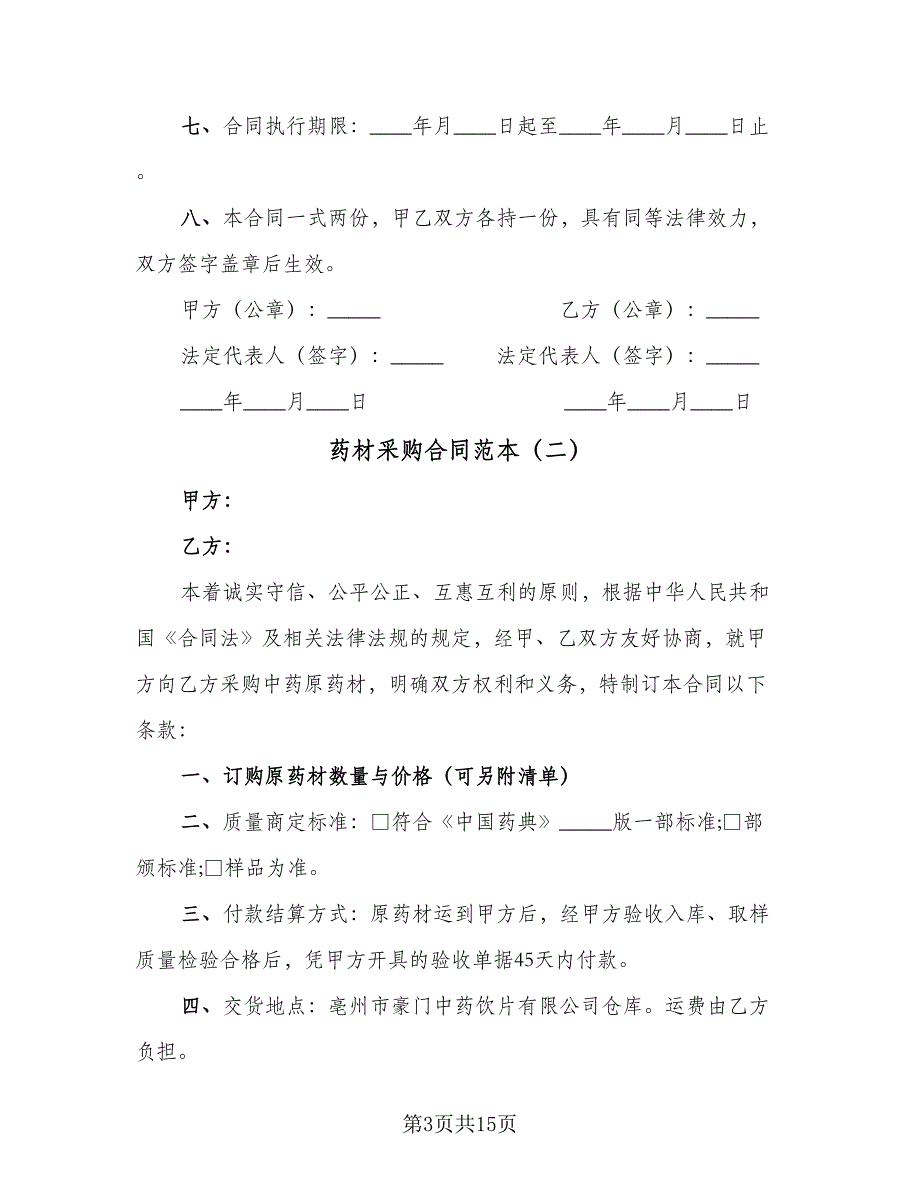 七、合同执行期限：____年月____日起至____年____月____日止
。
八、本合同一式两份，甲乙双方各持一份，具有同等法律效力，
双方签字盖章后生效。
甲方（公章）：_____ 乙方（公章）：_____
法定代表人（签字）：_____ 法定代表人（签字）：_____
____年____月____日 ____年____月____日
药材采购合同范本（二）
甲方：
乙方：
本着诚实守信、公平公正、互惠互利的原则，根据中华人民共和
国《合同法》及相关法律法规的规定，经甲、乙双方友好协商，就甲
方向乙方采购中药原药材，明确双方权利和义务，特制订本合同以下
条款：
一、订购原药材数量与价格（可另附清单）
二、质量商定标准：□符合《中国药典》_____版一部标准;□部
颁标准;□样品为准。
三、付款结算方式：原药材运到甲方后，经甲方验收入库、取样
质量检验合格后，凭甲方开具的验收单据45天内付款。
四、交货地点：亳州市豪门中药饮片有限公司仓库。运费由乙方
负担。
第3页共15页